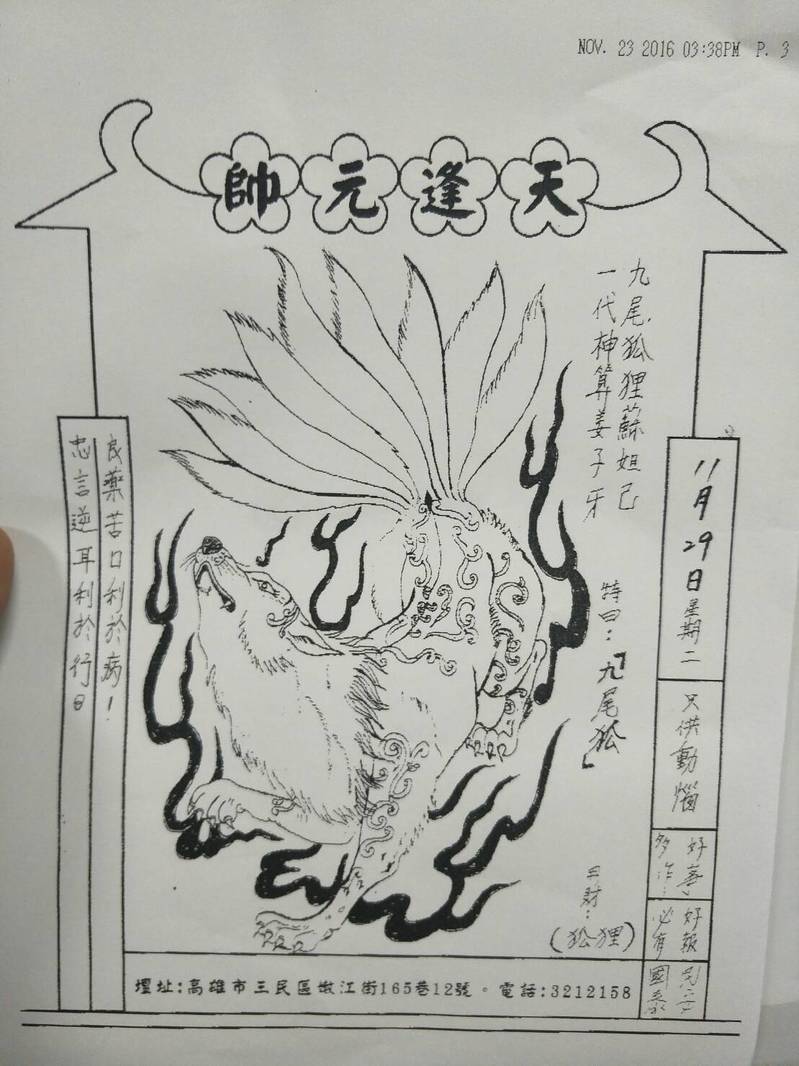 NOV. 23 2016 03:38PM P. 3
天逢元帥
九尾狐狸蘇妲己
一代神算姜子牙
特曰：「九尾狐」
11月29日星期二
只供動惱
好善多作…
好報必有
國泰民安
良藥苦口利於病！
忠言逆耳利於行曰
三財：
(狐狸)
壇址:高雄市三民區嫩江街165巷12號。電話:3212158